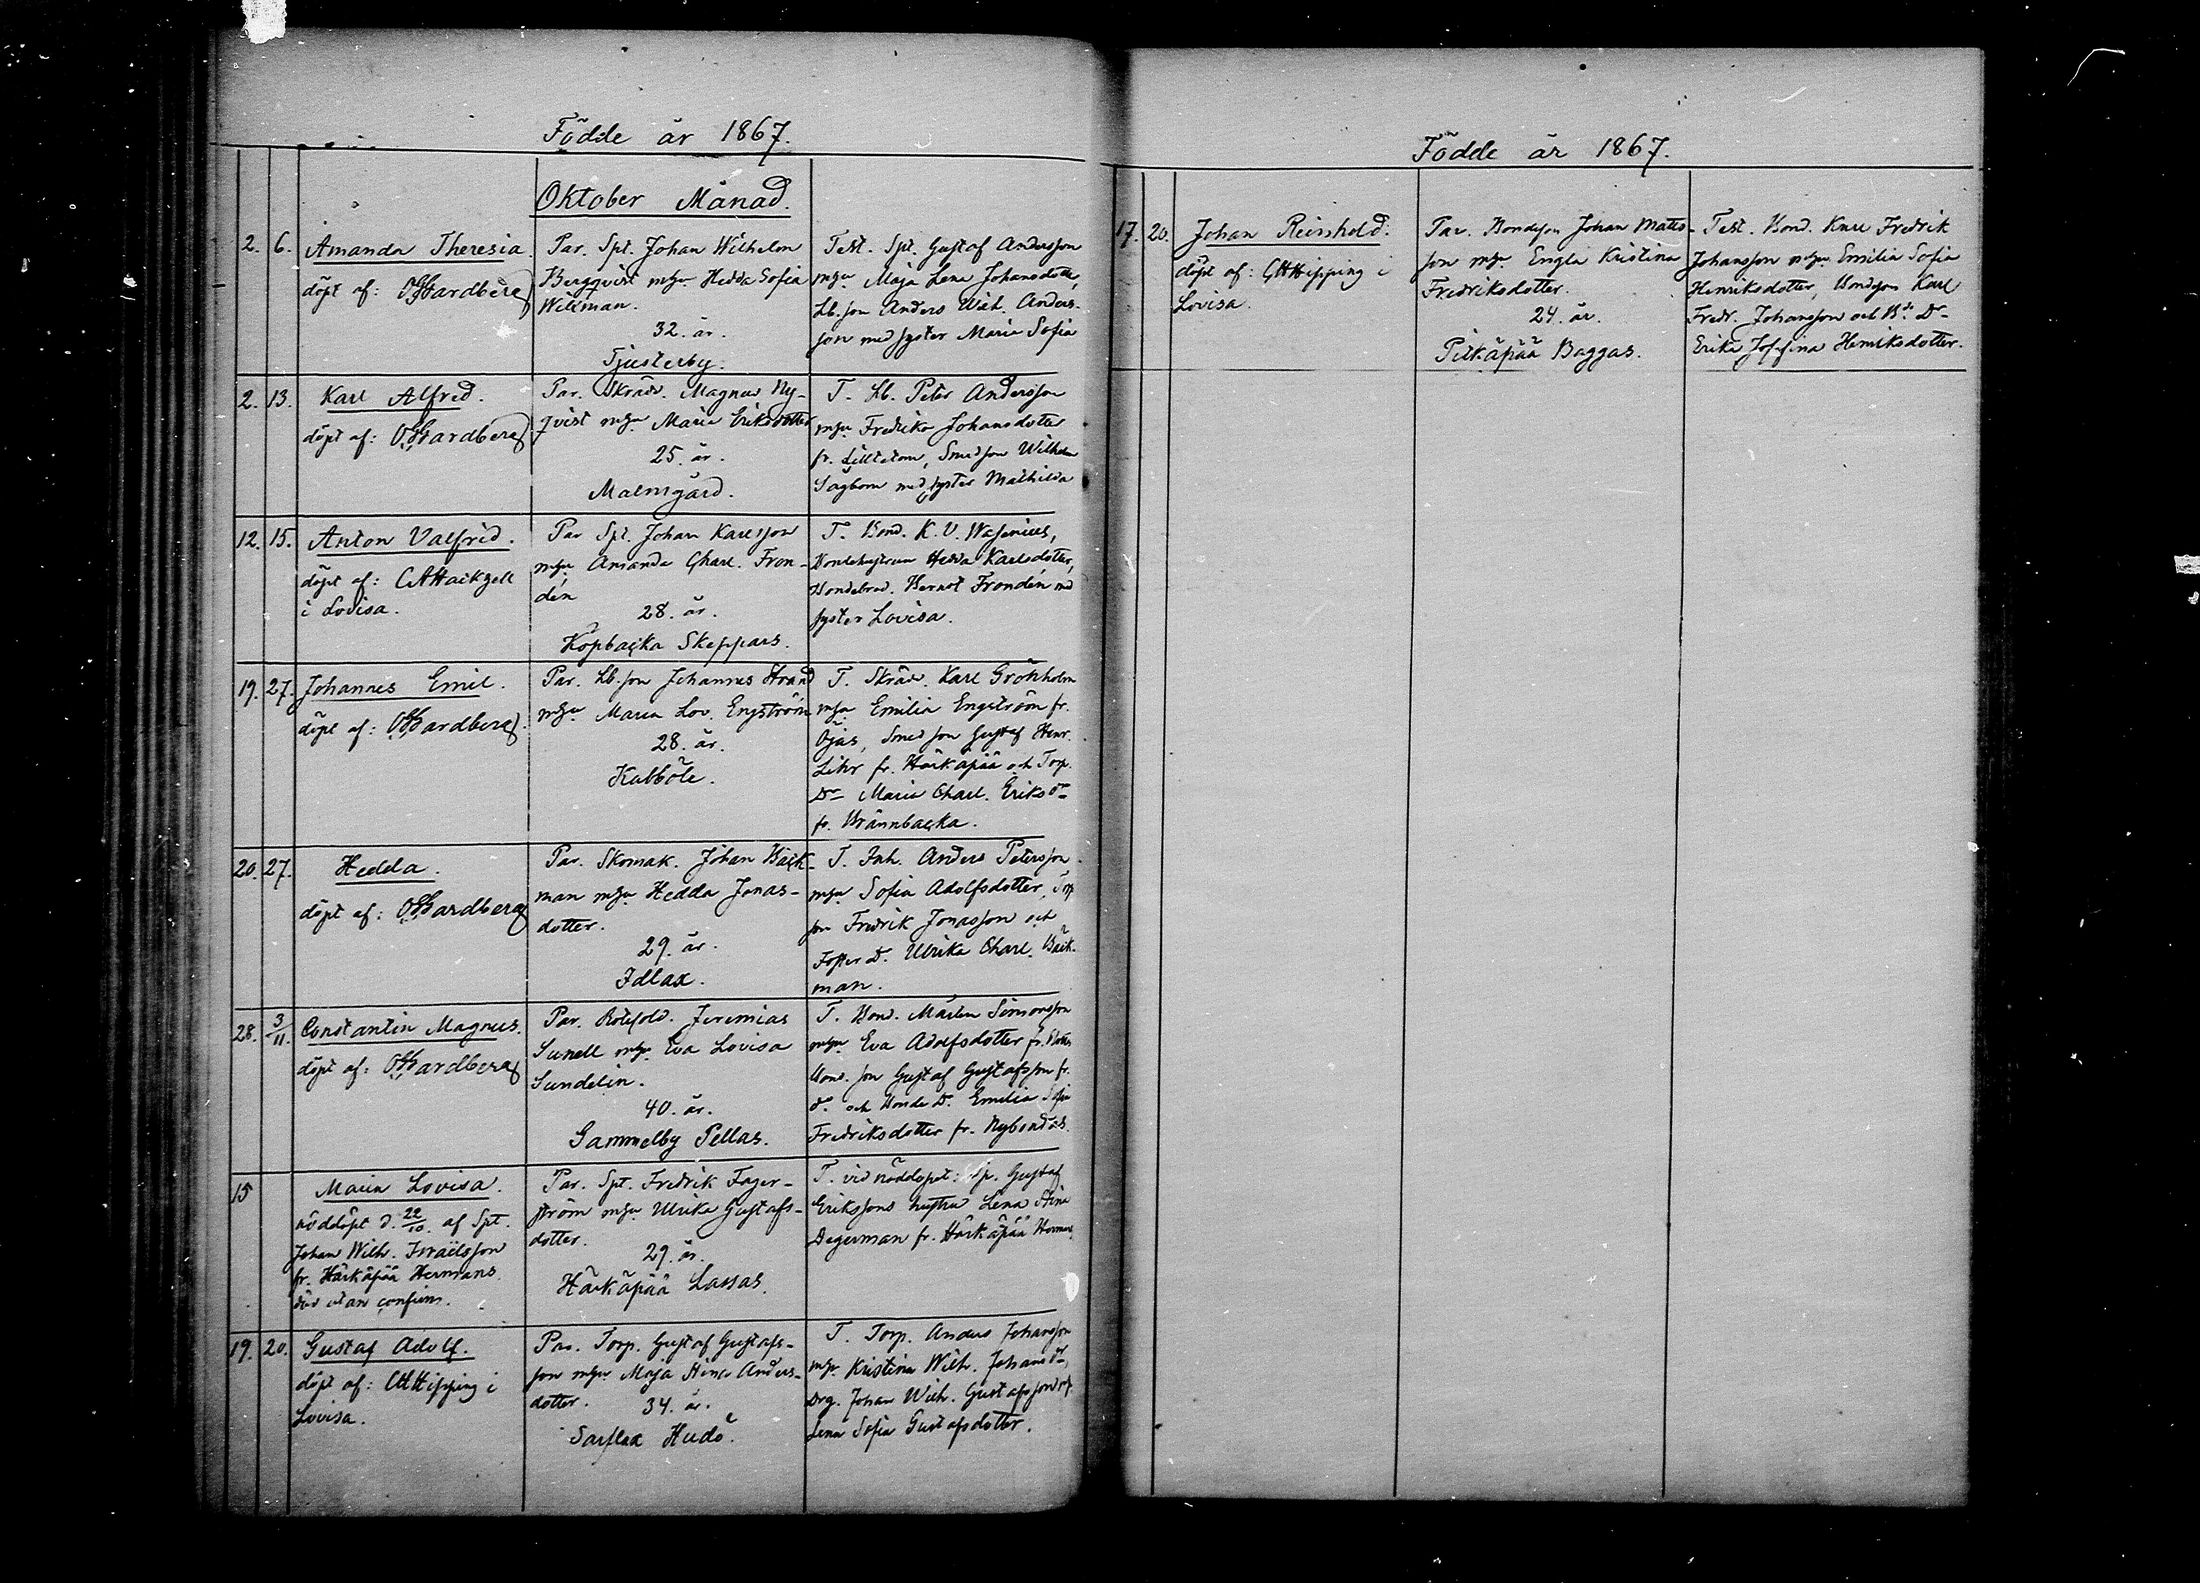 Födde år 1867.
Oktober Månad.
2. 6. Amanda Theresia.
döpt af: Hardberg
Par. Spt. Johan Wilhelm
Bergqvist m h:u Hedda Sofia
Willman.
32. år.
Tjusterby.
Test. Spt. Gustaf Andersson
m h:u Maja Lena Johansdotter,
Lb. son Anders Wilh. Anders-
son med syster Maria Sofia
2. 13. Karl Alfred.
döpt af: Hardberg
Par. Skräd. Magnus Ny-
qvist m h:u Maria Eriksdotter
25. år.
Malmgård.
T. Lb. Peter Andersson
m h:u Fredrika Johansdotter
fr. Lilltotom, Smedson Wilhelm
Sågbom med syster Mathilda
12. 15. Anton Valfrid.
döpt af: Hackzell
i Lovisa.
Par Spt. Johan Karlsson
m h:u Amanda Charl. Fron-
dén
28. år.
Köpbacka Skeppars.
T. Bond. K. V. Wasenius,
Bondehustrun Hedda Karlsdotter,
Bondebrod. Bernot Frondén med
syster Lovisa.
19. 27. Johannes Emil.
döpt af: Hardberg.
Par. Lb. son Johannes Strand
m h:u Maria Lov. Engström
28. år.
Kalböle.
T. Skräd. Karl Grönholm
m h:u Emilia Engström fr.
Öjas, Smed son Gustaf Henr.
Lihr fr. Härkäpää och Torp.
Dr Maria Charl. Eriksdr
fr. Brännbacka.
20. 27. Hedda.
döpt af: Hardberg
Par. Skomak. Johan Bäck-
man m h:u Hedda Jonas-
dotter.
29. år.
Idlax.
T. Inh. Anders Petersson
m h:u Sofia Adolfsdotter, Torp
son Fredrik Jonasson och
Foster D. Ulrika Charl. Bäck-
man.
28. 3/11. Constantin Magnus.
döpt af: Hardberg
Par. Rotesold. Jeremias
Sunell m h:u Eva Lovisa
Sundelin.
40. år.
Gammelby Pellas.
T. Bond. Mårten Simonsson
m h:u Eva Adolfsdotter fr.
Bond. son Gustaf Gustafsson fr.
do och Bonde D. Emilia Sofia
Fredriksdotter fr. Nybondas.
15 Maria Lovisa.
nöddöpt d. 22/10 af Spt.
Johan Wilh. Israelsson
fr. Härkäpää Hermans.
död utan confirm.
Par. Spt. Fredrik Fager-
ström m h:u Ulrika Gustafs-
dotter.
29. år.
Härkäpää Lassas.
T. vid nöddopet: Sp. Gustaf
Erikssons hustru Lena Stina
Degerman fr. Härkäpää Hermans
19. 20. Gustaf Adolf.
döpt af: Hipping i
Lovisa.
Par. Torp. Gustaf Gustafs-
son m h:u Maja Stina Anders-
dotter. 34. år.
Sarflax Hudö.
T. Torp. Anders Johansson
m h:u Kristina Wilh. Johansdr,
Drg. Johan Wilh. Gustafsson
Lena Sofia Gustafsdotter.
Födde år 1867.
17. 20. Johan Reinhold.
döpt af: GHHipping i
Lovisa
Par. Bondeson Johan Matts-
son m h:u Engla Kristina
Fredriksdotter.
24. år.
Pitkäpää Baggas.
Test. Bond. Karl Fredrik
Johansson m h:u Emilia Sofia
Henriksdotter, Bondeson Karl
Fredr. Johansson och Bde Dr
Erika Josefina Henriksdotter.